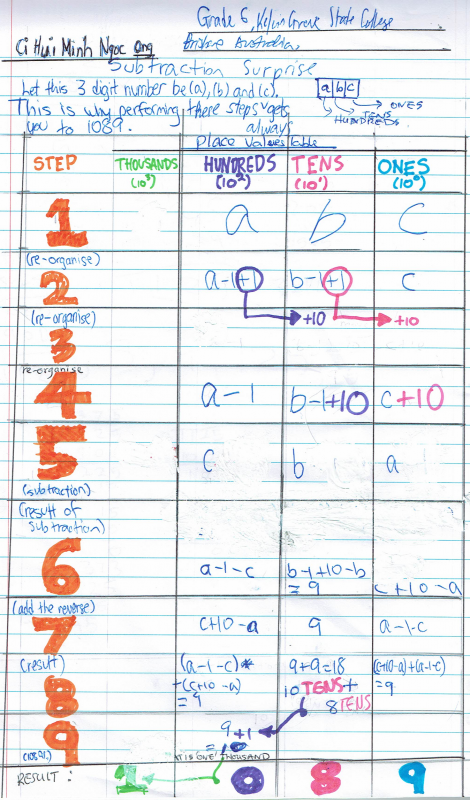 Grade 6, Kelvin Grove State College
Ci Hui Minh Ngoc Ong Brisbane Australia
Subtraction Surprise
Let this 3 digit number be (a), (b) and (c). a b c
→ ONES
→ TENS
HUNDREDS
This is why performing these steps always gets
you to 1089.
Place Values Table
STEP THOUSANDS (10³) HUNDREDS (10²) TENS (10¹) ONES (10⁰)
1 a b c
(re-organise)
2 a-1+1 b-1+1 c
(re-organise) +10 +10
3
re-organise
4 a-1 b-1+10 c+10
5 c b a
(subtraction)
(result of
subtraction)
6 a-1-c b-1+10-b = 9 c+10-a
(add the reverse)
7 c+10-a 9 a-1-c
(result) (a-1-c)* 9+9=18 (c+10-a)+(a-1-c)
8 +(c+10-a) 10 TENS+ =9
=9 8 TENS
9 9+1
(1089!) =10
IS ONE THOUSAND
RESULT: 1 0 8 9